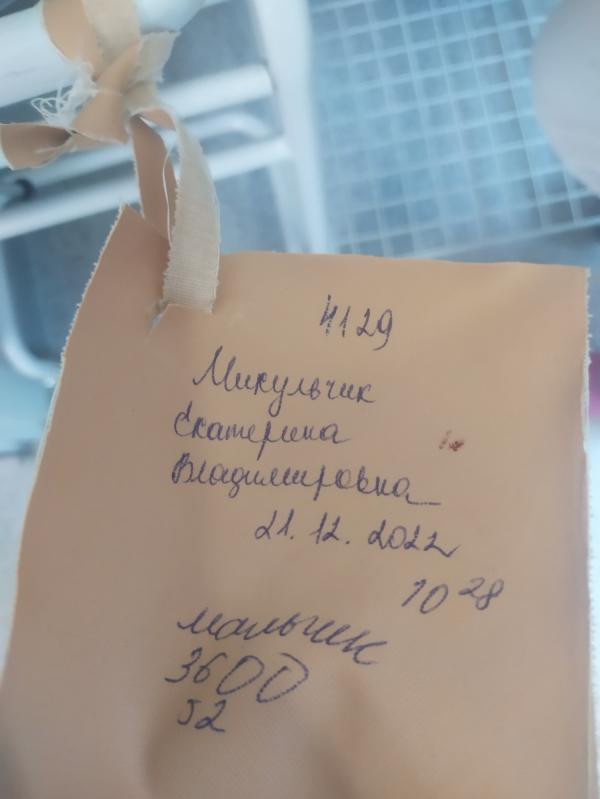 4129
Микульчик
Екатерина
Владимировна
21.12.2022
10 28
мальчик
3600
52